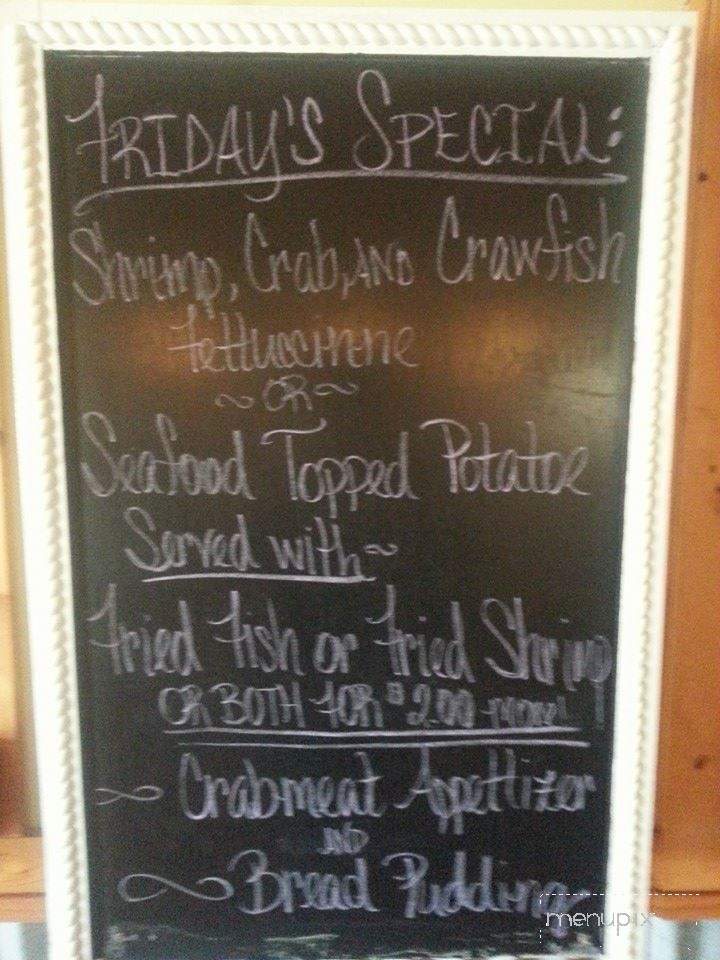 FRIDAY'S SPECIAL:
Shrimp, Crab, AND Crawfish
Fettuccinne
~ OR ~
Seafood Topped Potatoe
Served with ~
Fried Fish or Fried Shrimp
OR BOTH FOR $2.00 MORE!
Crabmeat Appetizer
AND
Bread Pudding
menupix